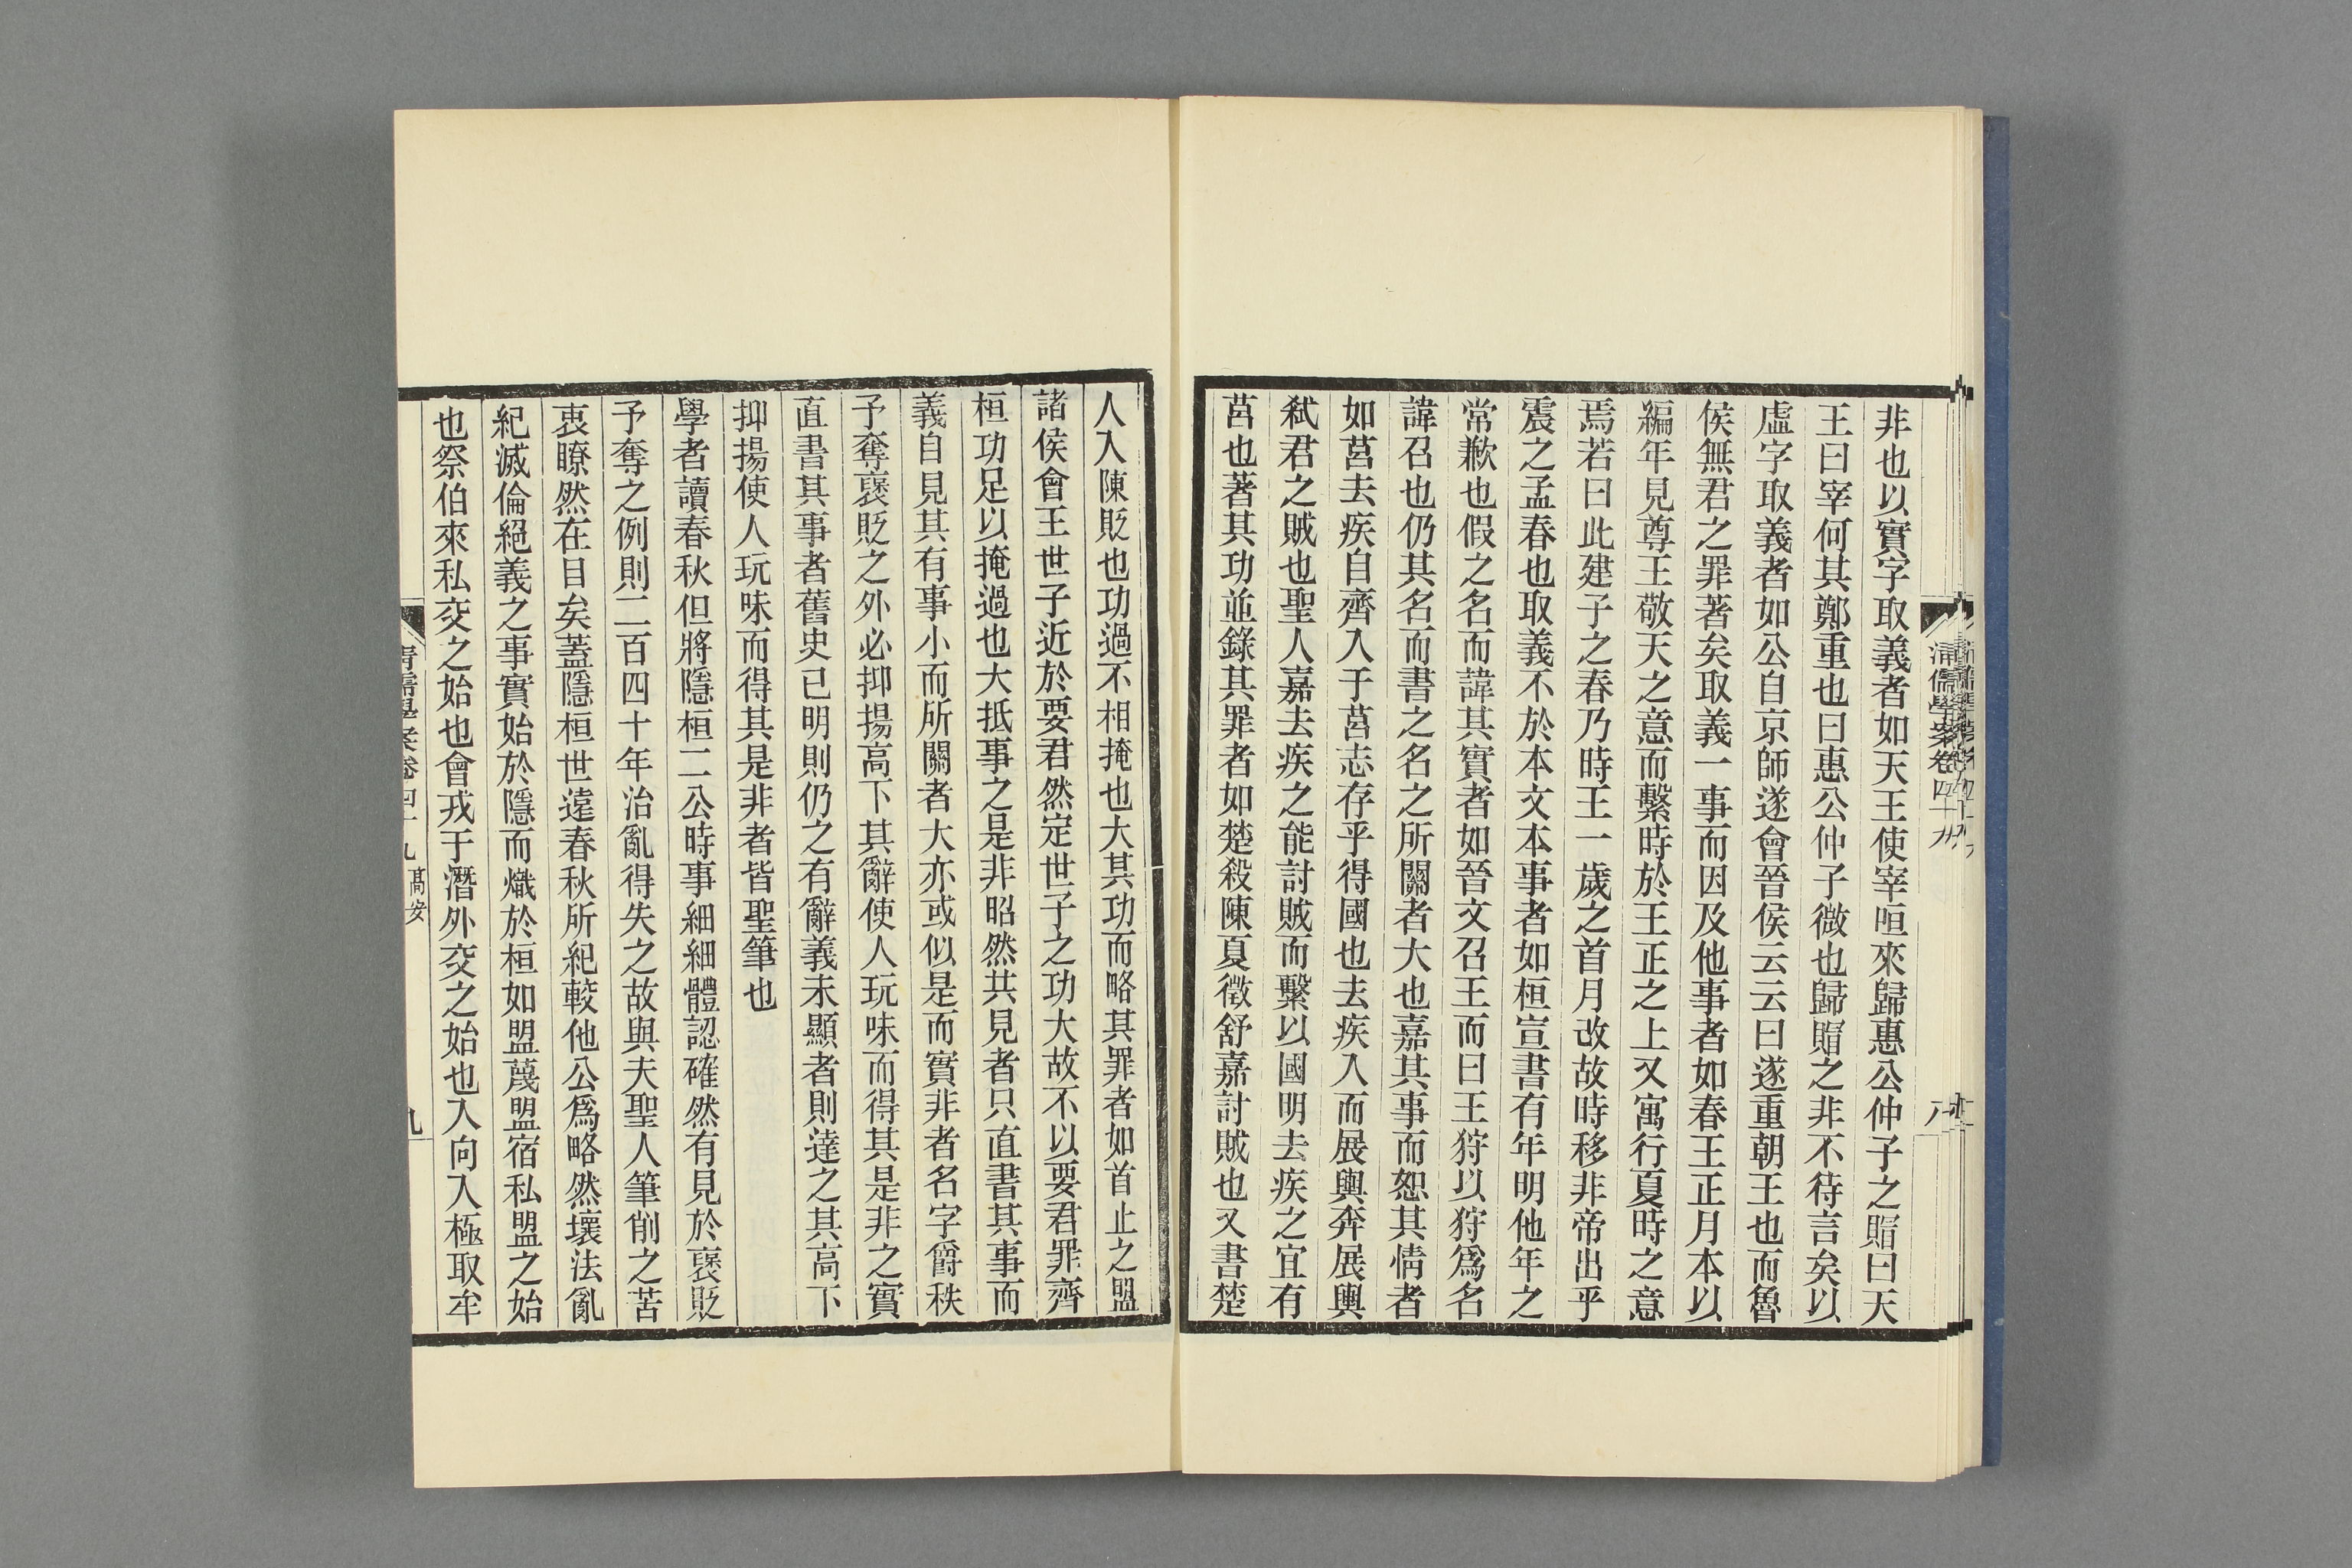 非也以實字取義者如天王使宰咺來歸惠公仲子之賵曰天
王曰宰何其鄭重也曰惠公仲子微也歸賵之非不待言矣以
虛字取義者如公自京師遂會晉侯云云曰遂重朝王也而魯
侯無君之罪著矣取義一事而因及他事者如春王正月本以
編年見尊王敬天之意而繫時於王正之上又寓行夏時之意
焉若曰此建子之春乃時王一歲之首月改故時移非帝出乎
震之孟春也取義不於本文本事者如桓宣書有年明他年之
常歉也假之名而諱其實者如晉文召王而曰王狩以狩爲名
諱召也仍其名而書之名之所關者大也嘉其事而恕其情者
如莒去疾自齊入于莒志存乎得國也去疾入而展輿奔展輿
弒君之賊也聖人嘉去疾之能討賊而繫以國明去疾之宜有
莒也著其功並錄其罪者如楚殺陳夏徵舒嘉討賊也又書楚
清儒學案卷四十九
八
人入陳貶也功過不相掩也大其功而略其罪者如首止之盟
諸侯會王世子近於要君然定世子之功大故不以要君罪齊
桓功足以掩過也大抵事之是非昭然共見者只直書其事而
義自見其有事小而所關者大亦或似是而實非者名字爵秩
予奪褒貶之外必抑揚高下其辭使人玩味而得其是非之實
直書其事者舊史已明則仍之有辭義未顯者則達之其高下
抑揚使人玩味而得其是非者皆聖筆也
學者讀春秋但將隱桓二公時事細細體認確然有見於褒貶
予奪之例則二百四十年治亂得失之故與夫聖人筆削之苦
衷瞭然在目矣蓋隱桓世遠春秋所紀較他公爲略然壞法亂
紀滅倫絕義之事實始於隱而熾於桓如盟蔑盟宿私盟之始
也祭伯來私交之始也會戎于潛外交之始也入向入極取牟
清儒學案卷四十九 高安
九